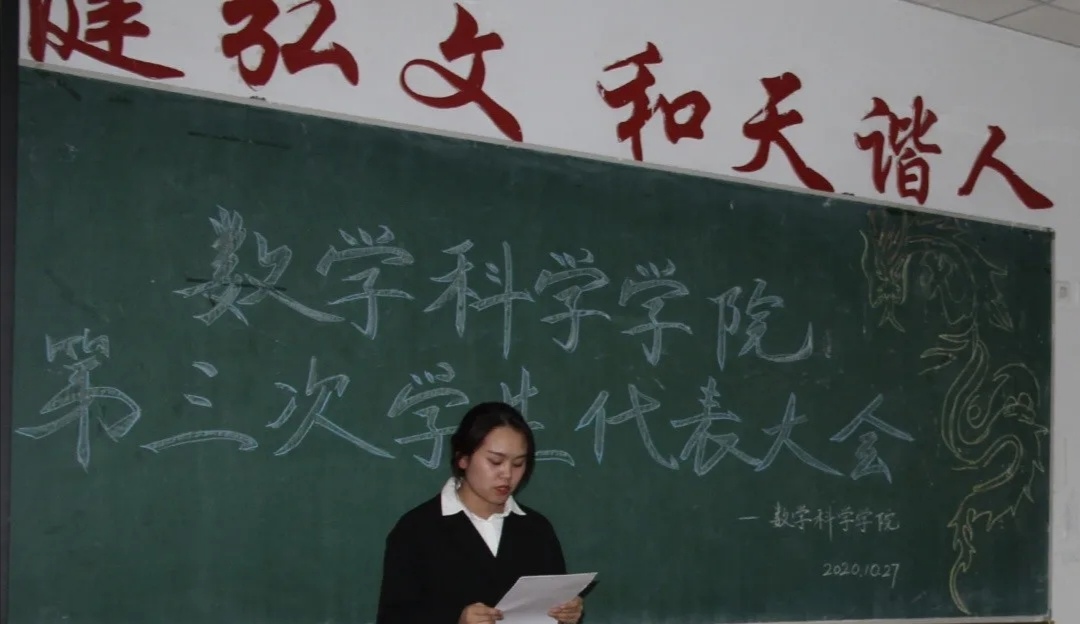 健弘文 和天谐人
数学科学学院
第三次学生代表大会
一数学科学学院
2020.10.27